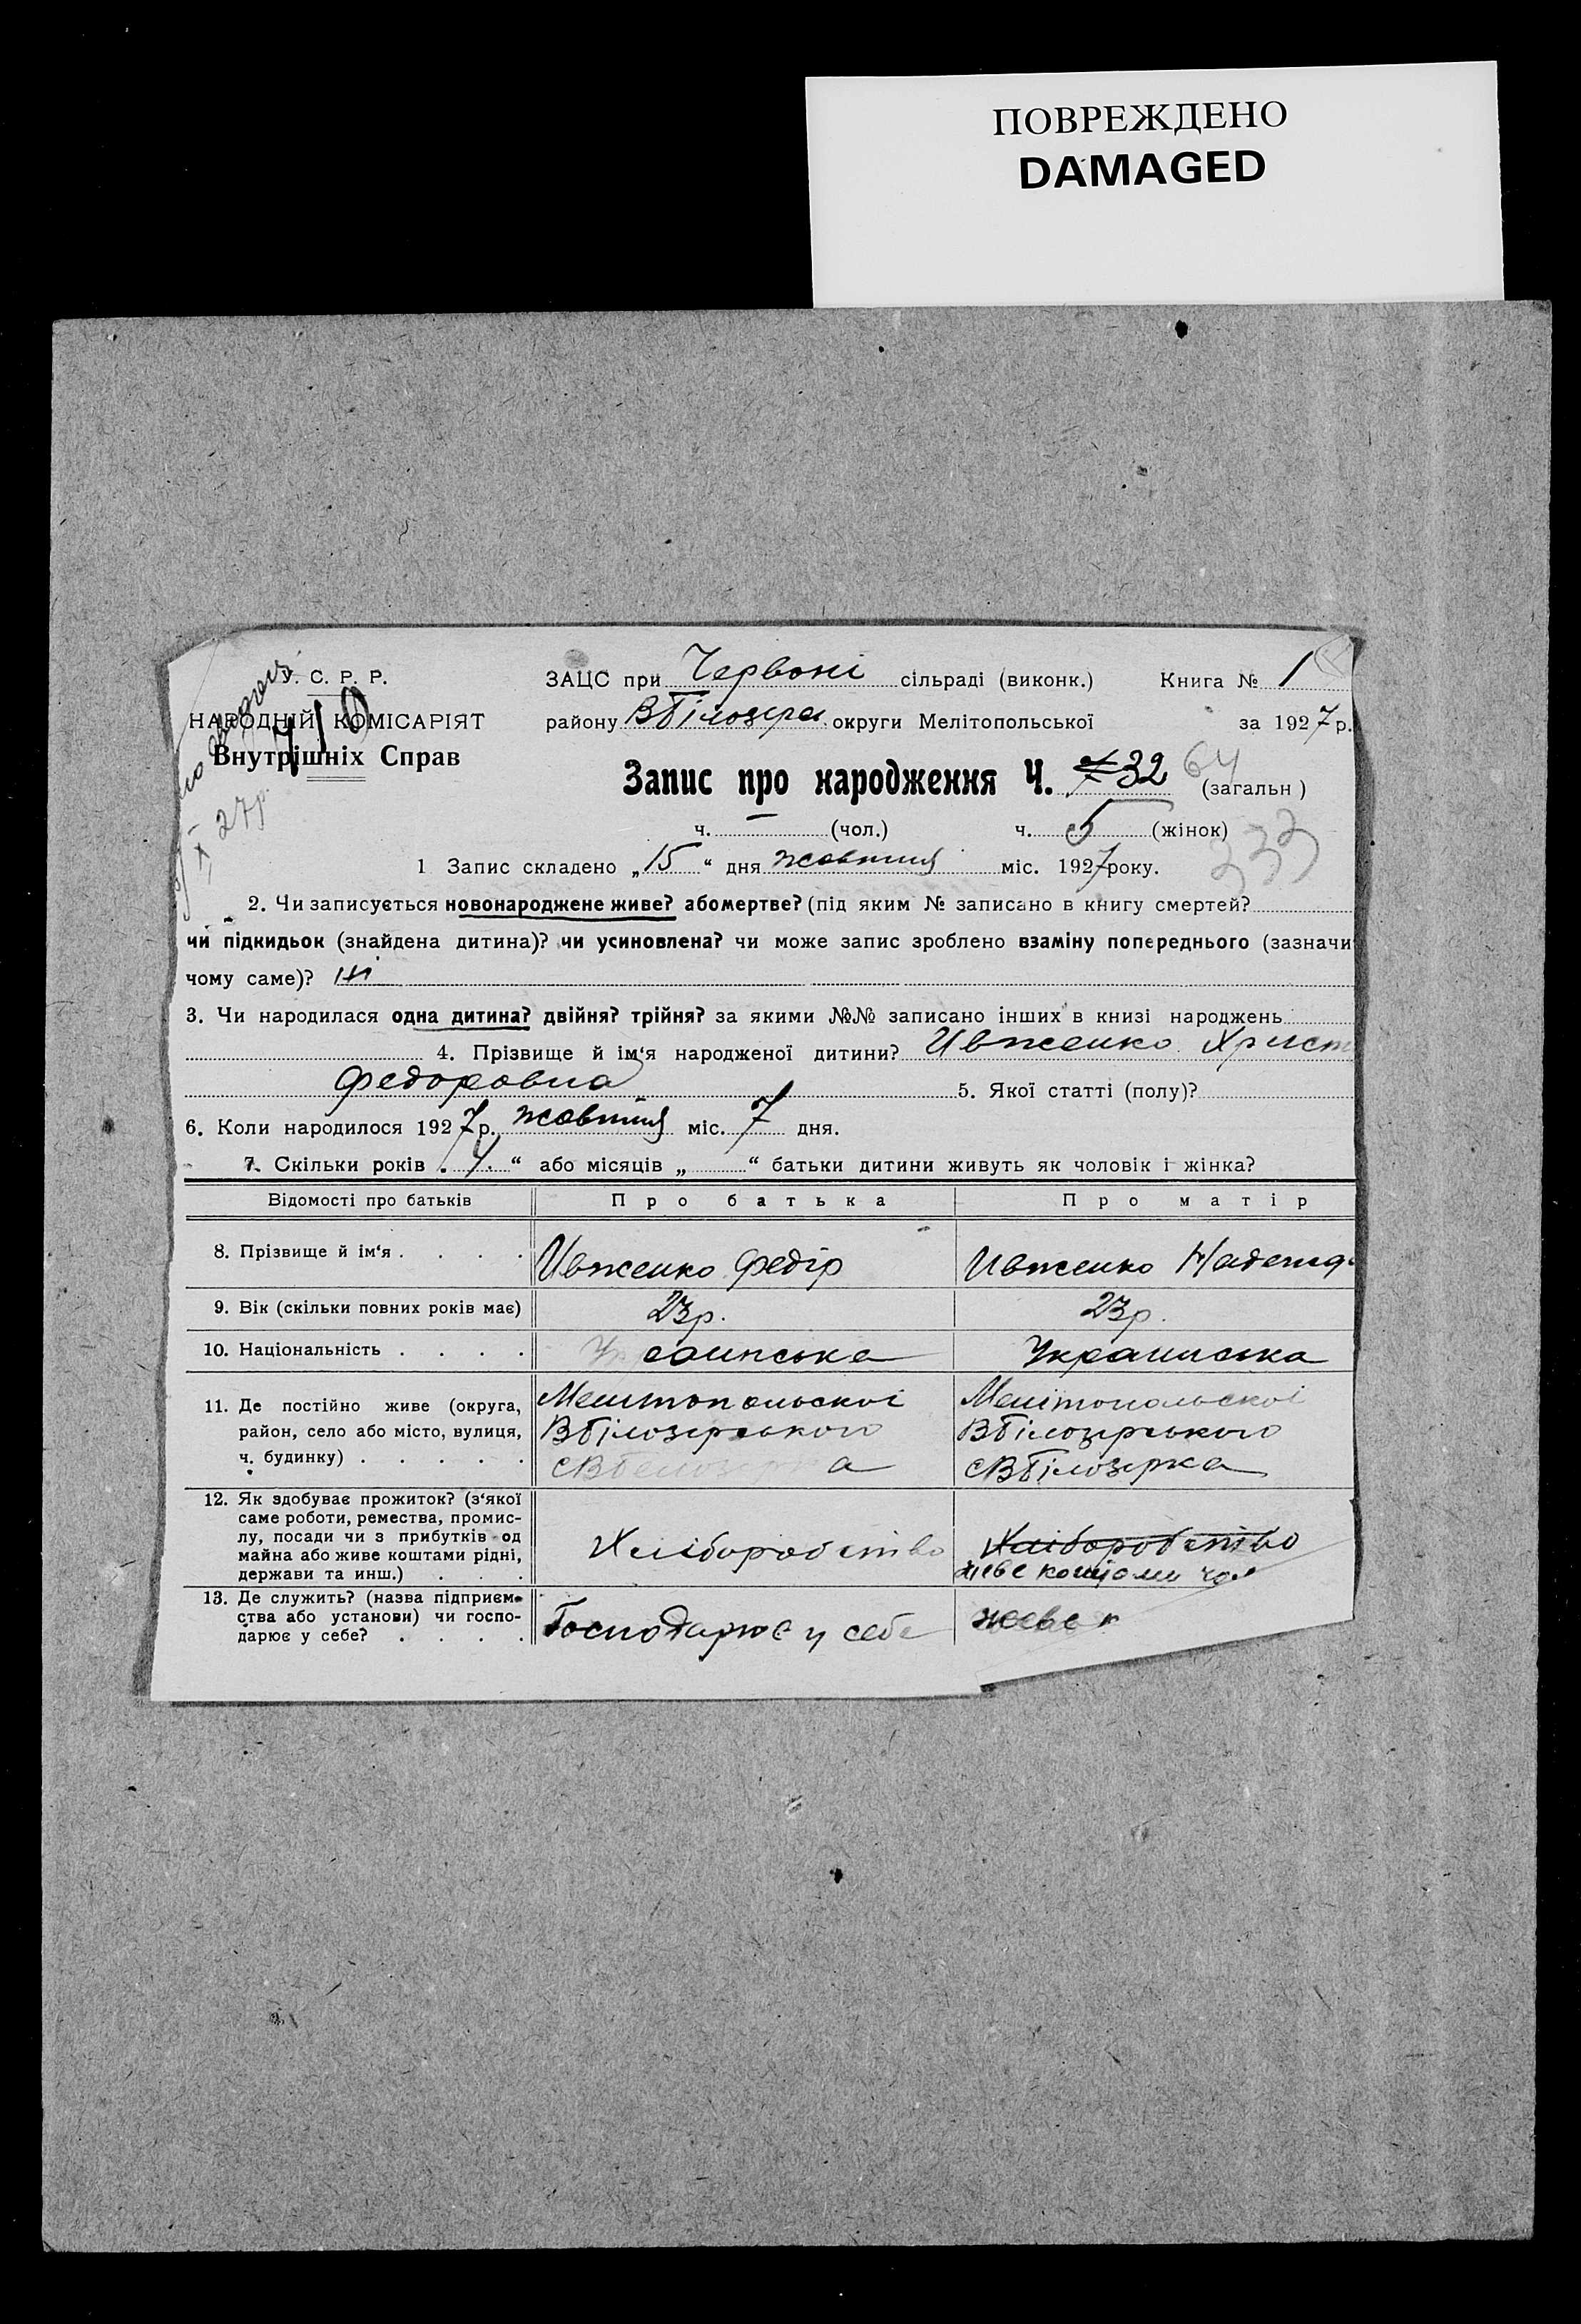 ПОВРЕЖДЕНО
DAMAGED
У. С. Р. Р.
НАРОДНІЙ КОМІСАРІЯТ
Внутрішніх Справ
410
27р.
ЗАЦС при Червоні сільраді (виконк.) Книга № 1
району ВБілозера округи Мелітопольської за 1927 р.
Запис про народження Ч. 32 64 (загальн)
ч. — (чол.) ч. 5 (жінок)
333
1 Запис складено „15“ дня жовтня міс. 1927 року.
2. Чи записується новонароджене живе? або мертве? (під яким № записано в книгу смертей?
чи підкидьок (знайдена дитина)? чи усиновлена? чи може запис зроблено взаміну попереднього (зазначи
чому саме)? ні
3. Чи народилася одна дитина? двійня? трійня? за якими №№ записано інших в книзі народжень
4. Прізвище й ім‘я народженої дитини? Ивженко Христ
Федоровна 5. Якої статті (полу)?
6. Коли народилося 1927 р. жовтня міс. 7 дня.
7. Скільки років „4“ або місяців „ “ батьки дитини живуть як чоловік і жінка?
Відомості про батьків Про батька Про матір
8. Прізвище й ім‘я . . . . Ивженко Федір Ивженко Надежд
9. Вік (скільки повних років має) 23р. 23р.
10. Національність . . . . Украинська Украинська
11. Де постійно живе (округа, район, село або місто, вулиця, ч. будинку) . . . . . Мелитопольскоі ВБілозерського сВБелозерка Мелітопольскоі ВБілозерського сВБілозерка
12. Як здобуває прожиток? (з‘якої саме роботи, ремества, промислу, посади чи з прибутків од майна або живе коштами рідні, держави та инш.) . . . Хлібороб ство Хлібороб ство живе коштоми чол
13. Де служить? (назва підприємства або установи) чи господарює у себе? . . . . Господарює у себе